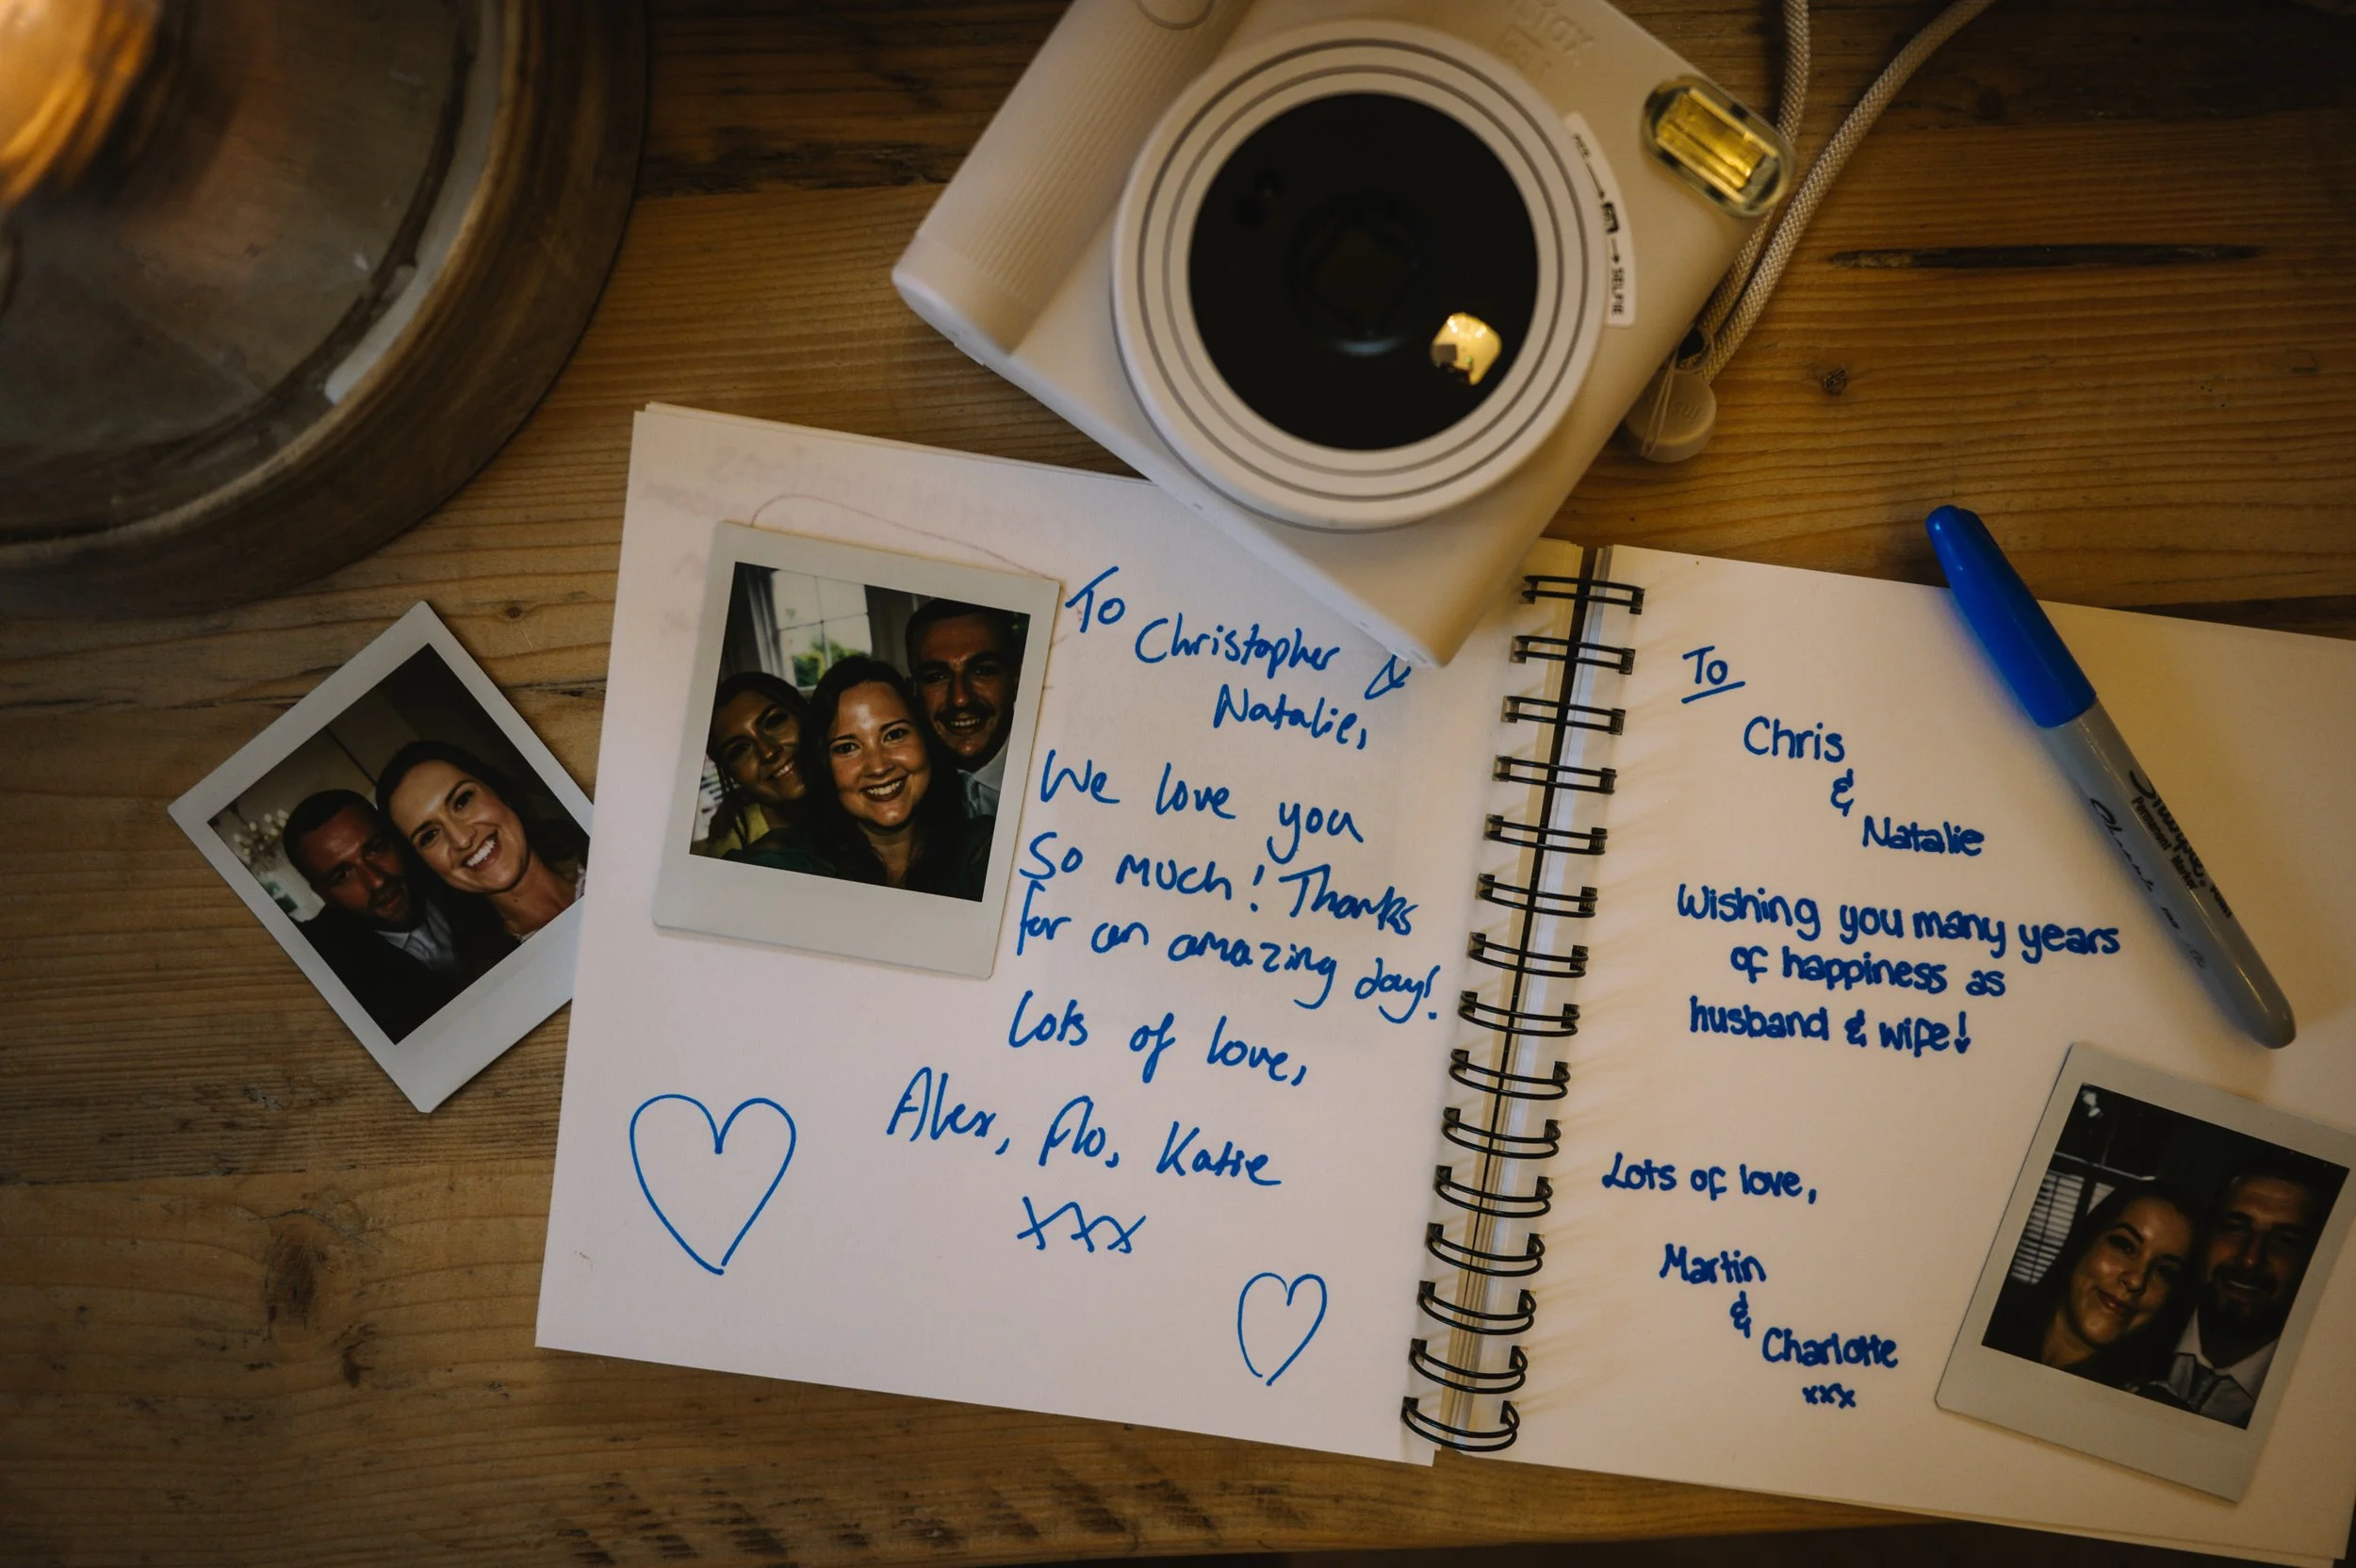 To
Christopher &
Natalie,
We love you
So much! Thanks
for an amazing day!
Lots of love,
Alex, Flo, Katie
xxx
To
Chris
&
Natalie
Wishing you many years
of happiness as
husband & wife!
Lots of love,
Martin
&
Charlotte
xxx
SELFIE
Sharpie
Permanent Marker